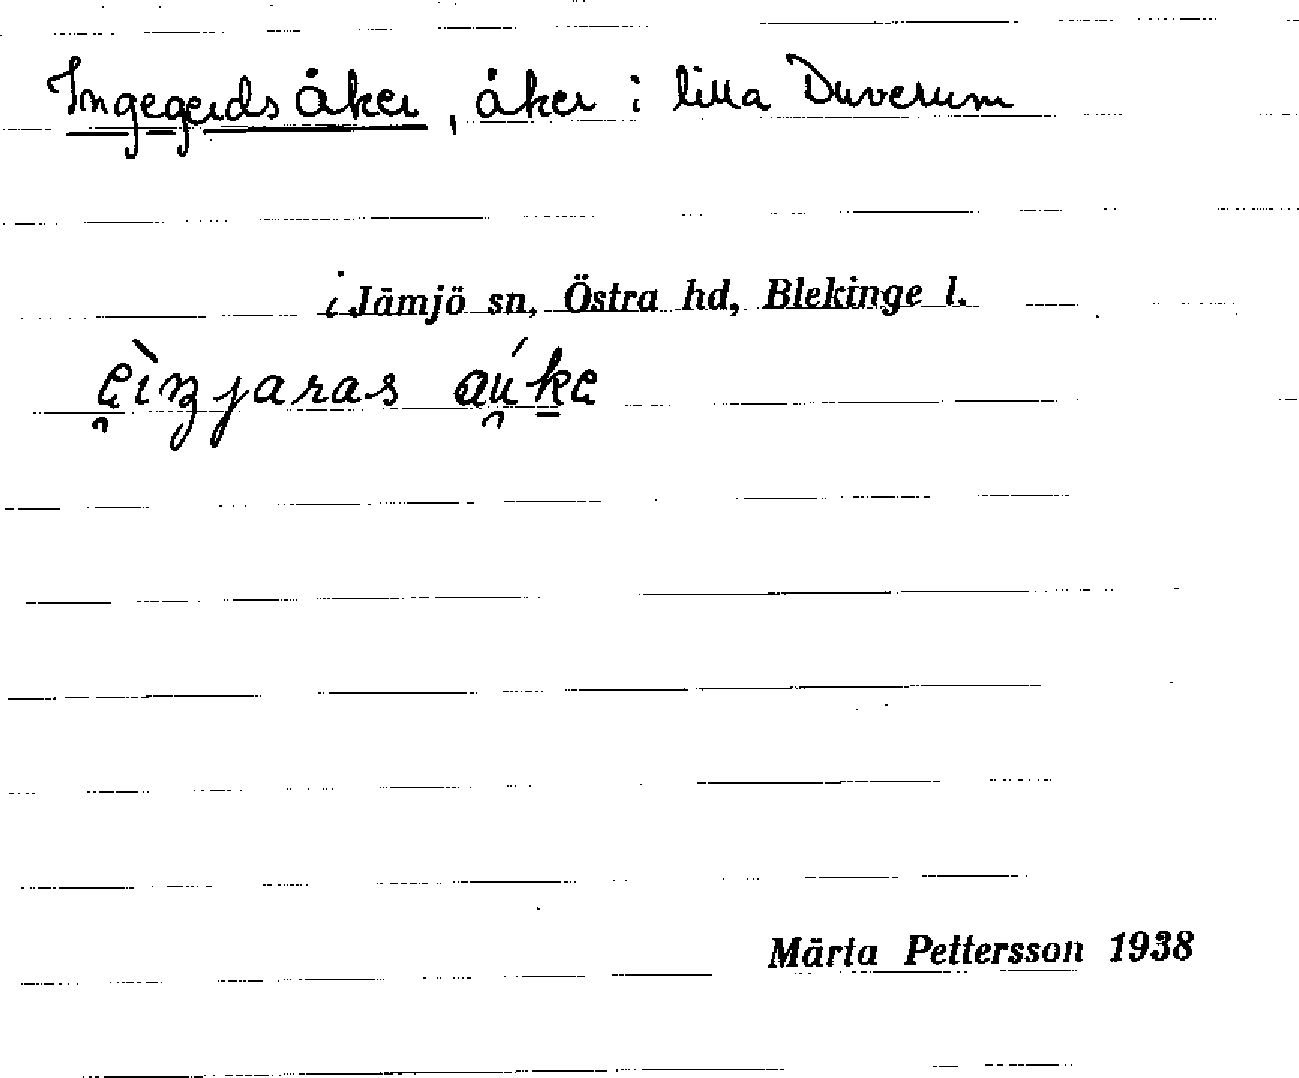 Ingegerds åker, åker i lilla Duverum
i Jämjö sn, Östra hd, Blekinge l.
Märta Pettersson 1938